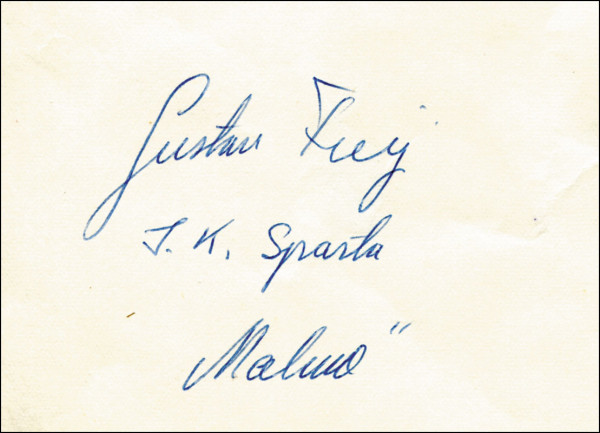 Gustav Freij
I. K. Sparta
Malmö